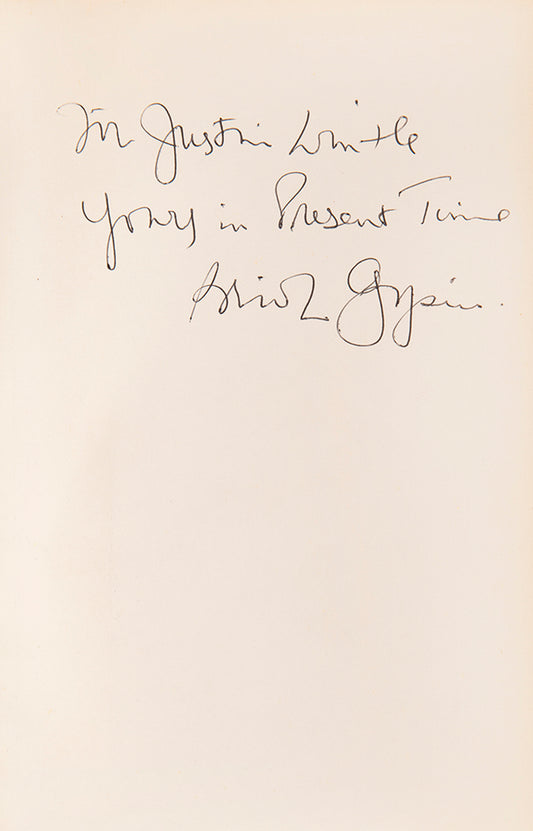 For Justin Wintle
Yours in Present Time
Brion Gysin.